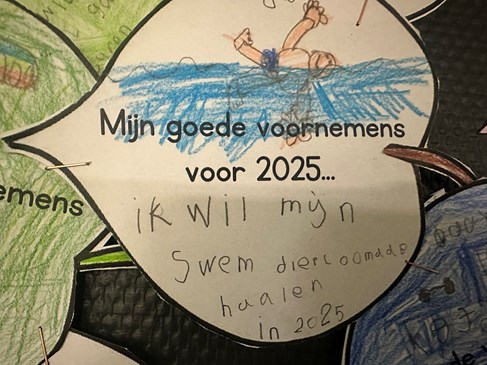 Mijn goede voornemens
voor 2025...
ik wil mijn
Swem diercoomade
haalen
in 2025
emens